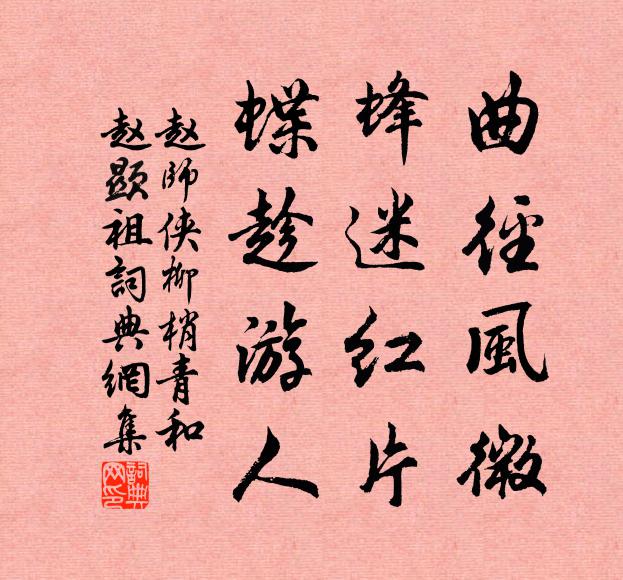 曲徑風微
蜂迷红片
蝶趁游人
赵師侠柳梢青和
赵顯祖詞典網集
詞典网印